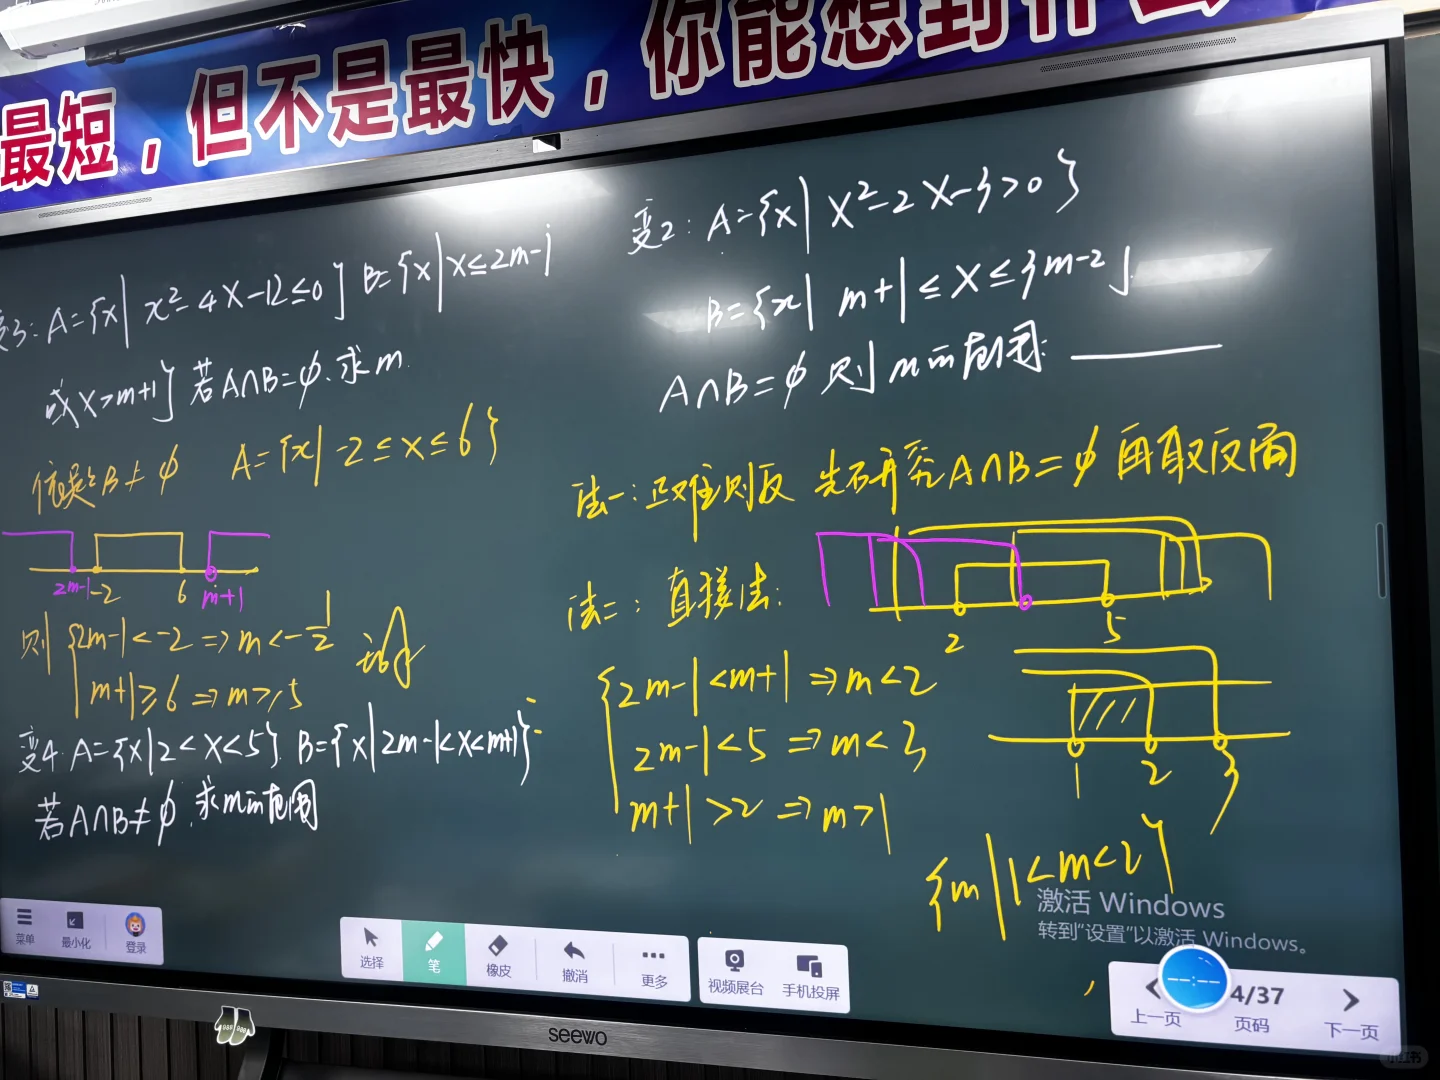 最短，但不是最快，你能想到什么
变3: A={x| x²-4x-12≤0} B={x|x≤2m-1
或x>m+1} 若A∩B=φ, 求m.
B≠φ A={x|-2≤x≤6}
2m-1 -2 6 m+1
则 {2m-1<-2 ⇒ m<-1/2
m+1≥6 ⇒ m≥5
变4. A={x|2<x<5}. B={x|2m-1<x<m+1}
若A∩B≠φ, 求m的范围
变2: A={x| x²-2x-3>0}
B={x| m+1≤x≤3m-2}
A∩B=φ 则 m的范围:
法一: 正难则反 先研究A∩B=φ 再取反面
法二: 直接法:
2 5
{2m-1<m+1 ⇒ m<2
2m-1<5 ⇒ m<3
m+1>2 ⇒ m>1
1 2 3
{m|1<m<2}
激活 Windows
转到"设置"以激活 Windows。
菜单 最小化 登录
选择 笔 橡皮 撤消 更多
视频展台 手机投屏
上一页 4/37 页码 下一页
seewo
小红书